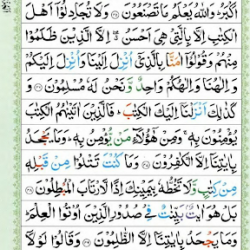 اَكْبَرُ ؕ وَاللّٰهُ يَعْلَمُ مَا تَصْنَعُوْنَ ﴿۴۵﴾ وَلَا تُجَادِلُوْۤا اَهْلَ
الْكِتٰبِ اِلَّا بِالَّتِيْ هِيَ اَحْسَنُ ۖ اِلَّا الَّذِيْنَ ظَلَمُوْا
مِنْهُمْ وَقُوْلُوْۤا اٰمَنَّا بِالَّذِيْۤ اُنْزِلَ اِلَيْنَا وَاُنْزِلَ اِلَيْكُمْ
وَاِلٰهُنَا وَاِلٰهُكُمْ وَاحِدٌ وَّنَحْنُ لَهٗ مُسْلِمُوْنَ ﴿۴۶﴾ وَ
كَذٰلِكَ اَنْزَلْنَاۤ اِلَيْكَ الْكِتٰبَ ؕ فَالَّذِيْنَ اٰتَيْنٰهُمُ الْكِتٰبَ
يُؤْمِنُوْنَ بِهٖ ۚ وَمِنْ هٰۤؤُلَآءِ مَنْ يُّؤْمِنُ بِهٖ ؕ وَمَا يَجْحَدُ
بِاٰيٰتِنَاۤ اِلَّا الْكٰفِرُوْنَ ﴿۴۷﴾ وَمَا كُنْتَ تَتْلُوْا مِنْ قَبْلِهٖ
مِنْ كِتٰبٍ وَّلَا تَخُطُّهٗ بِيَمِيْنِكَ اِذًا لَّارْتَابَ الْمُبْطِلُوْنَ ﴿۴۸﴾
بَلْ هُوَ اٰيٰتٌۢ بَيِّنٰتٌ فِيْ صُدُوْرِ الَّذِيْنَ اُوْتُوا الْعِلْمَ ؕ
وَمَا يَجْحَدُ بِاٰيٰتِنَاۤ اِلَّا الظّٰلِمُوْنَ ﴿۴۹﴾ وَقَالُوْا لَوْلَاۤ